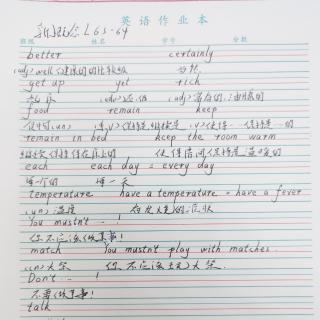 英语作业本
班级 姓名 学号 分数
新概念 L63-64
better certainly
(adj) well (健康的)的比较级 当然
get up yet rich
起床 (adv)还,仍 (adj)富有的,油腻的
food remain keep
食物(un) (v)保持,继续 (v)使…保持…的
remain in bed keep the room warm
继续保持待在床上的 使房间保持温暖的
each each day = every day
每一个的 每一天
temperature have a temperature = have a fever
(un)温度 有发烧的症状
You mustn't … !
你不应该(做某事)!
match You mustn't play with matches.
(cn)火柴 你不应该玩火柴
Don't … !
不要(做某事)!
talk